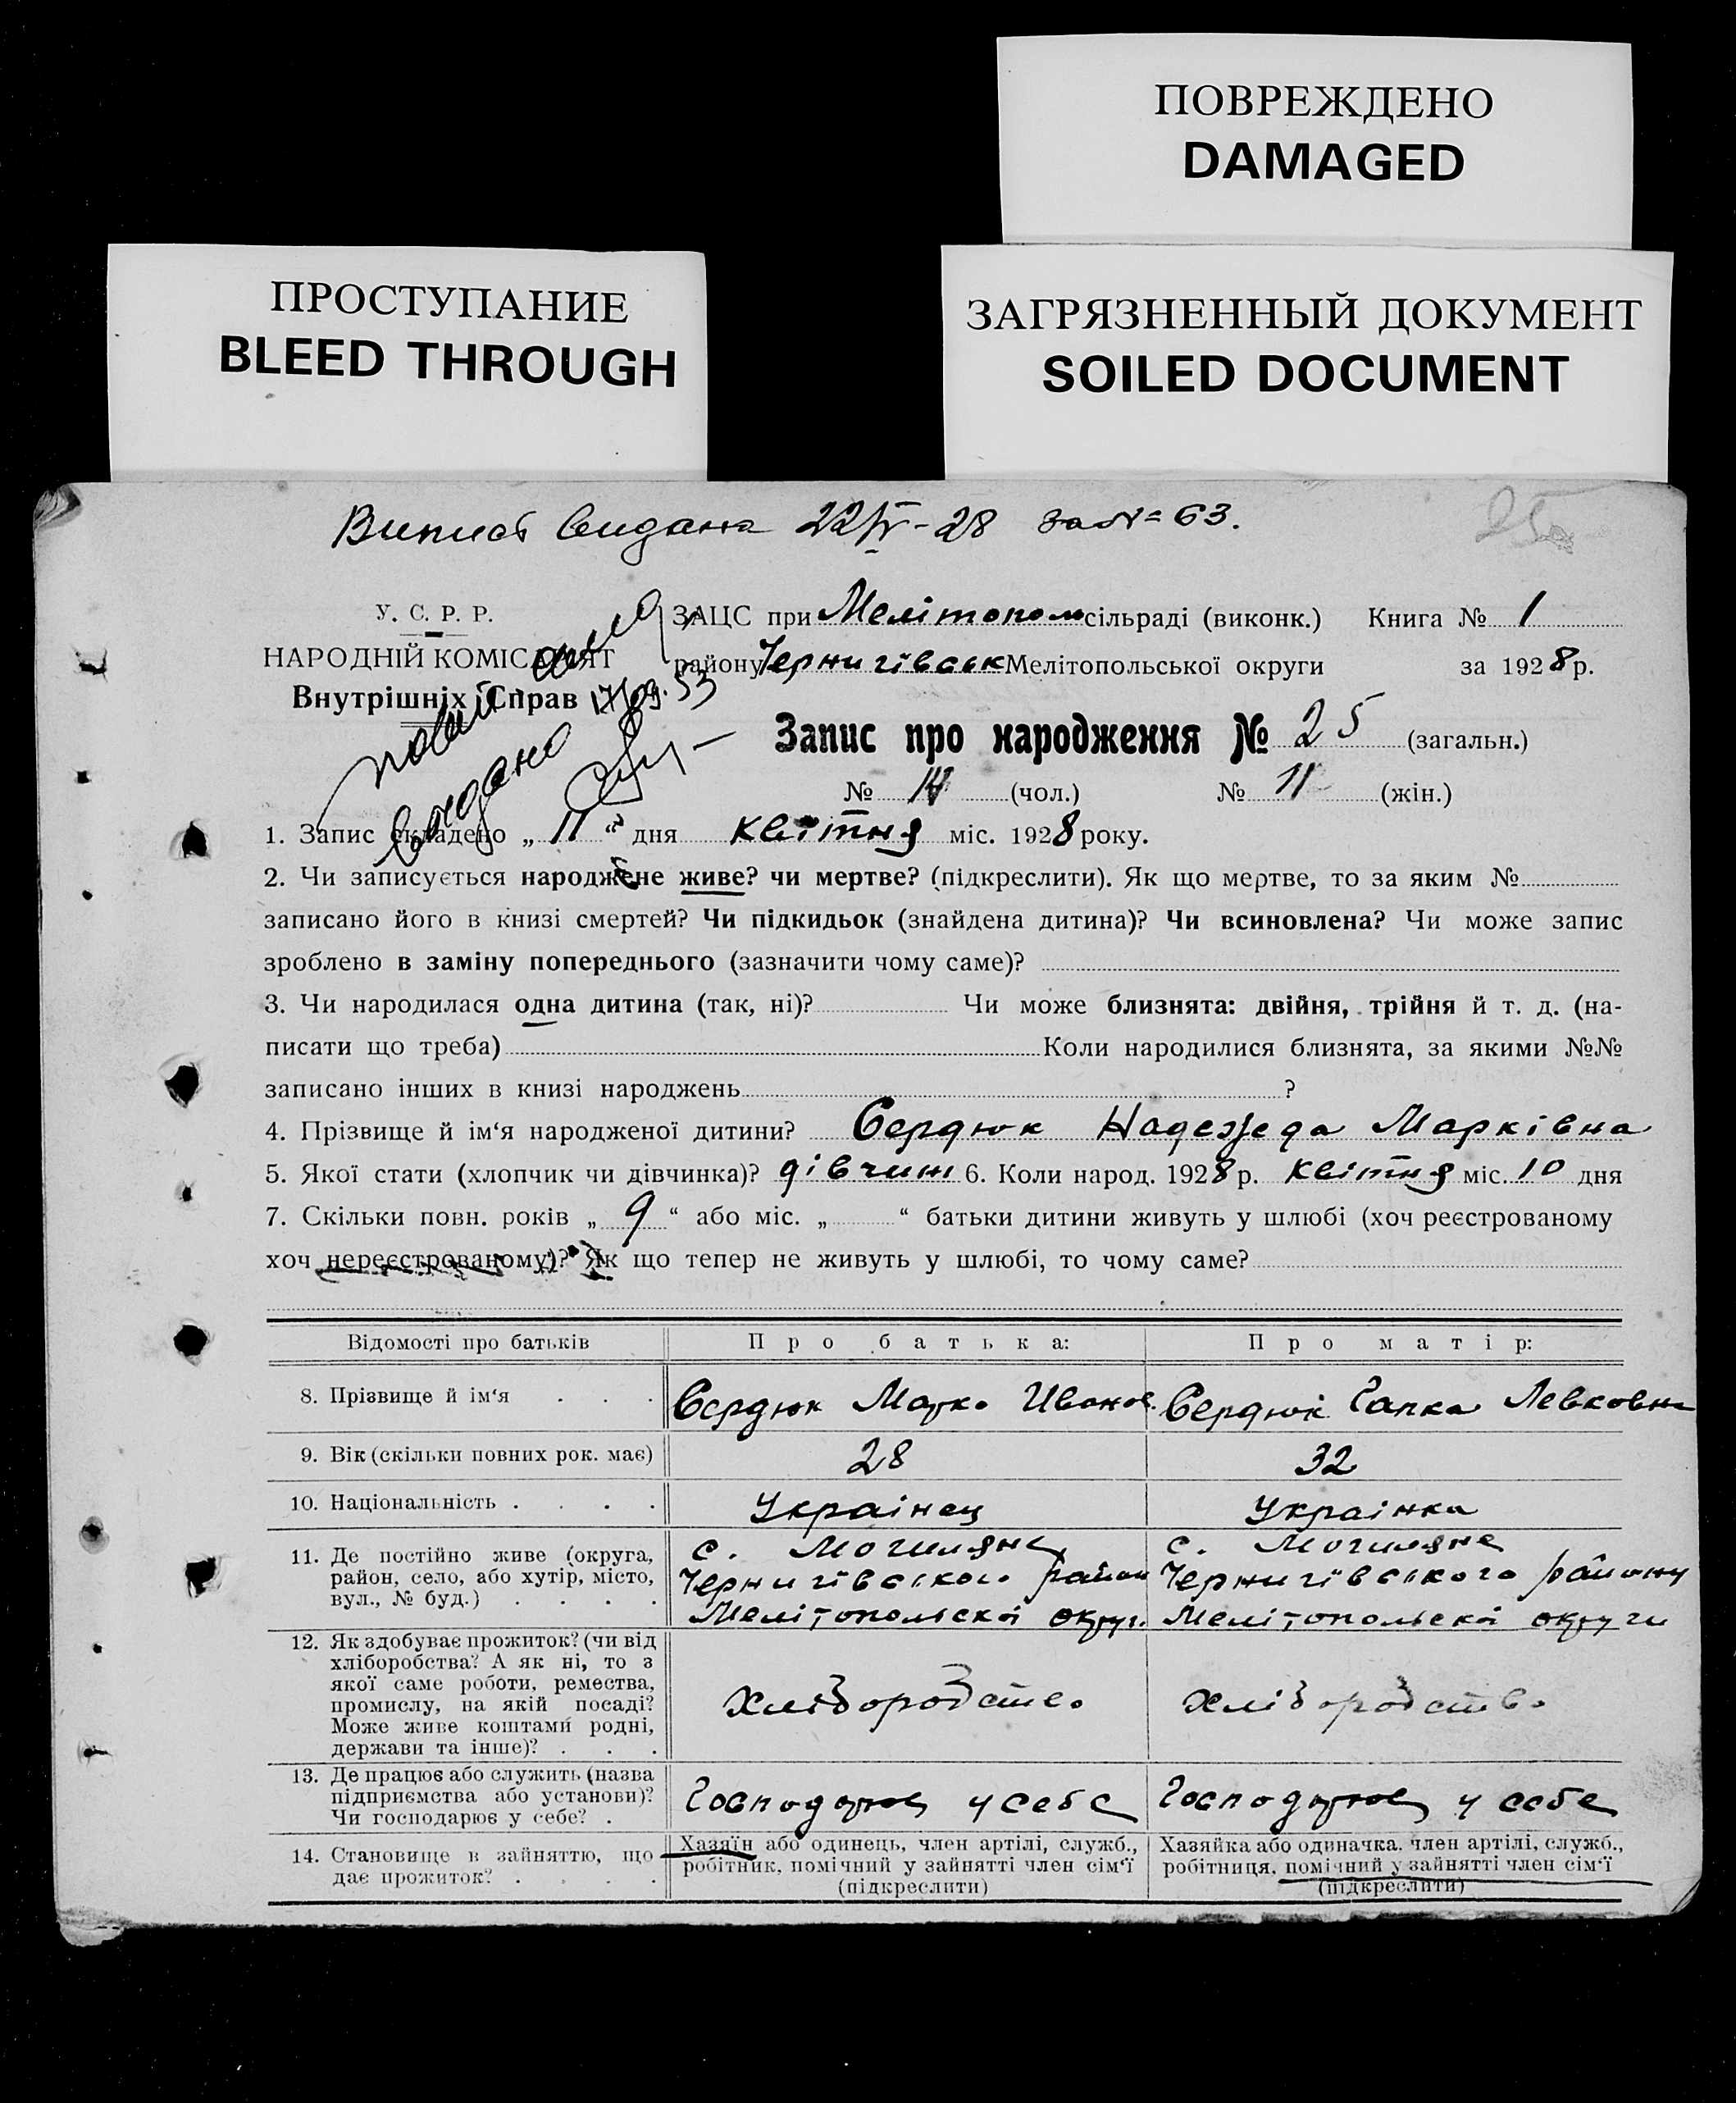 ПОВРЕЖДЕНО
DAMAGED
ПРОСТУПАНИЕ
BLEED THROUGH
ЗАГРЯЗНЕННЫЙ ДОКУМЕНТ
SOILED DOCUMENT
Випись видана 22/IV-28 за №=63.
25
У. С. Р. Р.
НАРОДНІЙ КОМІСАРІЯТ
Внутрішніх Справ
видано
ЗАЦС при Мелітопол сільраді (виконк.) Книга № 1
району Чернигівськ Мелітопольської округи за 1928 р.
Запис про народження № 25 (загальн.)
№ 14 (чол.) № 11 (жін.)
1. Запис складено „ 11 “ дня квітня міс. 1928 року.
2. Чи записується народжене живе? чи мертве? (підкреслити). Як що мертве, то за яким №
записано його в книзі смертей? Чи підкидьок (знайдена дитина)? Чи всиновлена? Чи може запис
зроблено в заміну попереднього (зазначити чому саме)?
3. Чи народилася одна дитина (так, ні)? Чи може близнята: двійня, трійня й т. д. (на-
писати що треба) Коли народилися близнята, за якими №№
записано інших в книзі народжень ?
4. Прізвище й ім‘я народженої дитини? Сердюк Надежда Марківна
5. Якої стати (хлопчик чи дівчинка)? дівчин 6. Коли народ. 1928 р. квітня міс. 10 дня
7. Скільки повн. років „ 9 “ або міс. „ “ батьки дитини живуть у шлюбі (хоч реєстрованому
хоч нереєстрованому)? Як що тепер не живуть у шлюбі, то чому саме?
Відомості про батьків Про батька: Про матір:
8. Прізвище й ім‘я . . . Сердюк Марко Иванов. Сердюк Гапка Левковна
9. Вік (скільки повних рок. має) 28 32
10. Національність . . . . Украінец Украінка
11. Де постійно живе (округа, район, село, або хутір, місто, вул., № буд.) . . . .
с. Могиляне
Чернигівського район
Мелітопольскоі округ.
с. Могиляне
Чернигівського району
Мелітопольскоі округи
12. Як здобуває прожиток? (чи від
хліборобства? А як ні, то з
якої саме роботи, ремества,
промислу, на якій посаді?
Може живе коштами родні,
держави та інше)? . . .
Хліборобство
хліборобство
13. Де працює або служить (назва
підприємства або установи)?
Чи господарює у себе? .
Господарює у себе
Господарює у себе
14. Становище в зайняттю, що
дає прожиток? . . . .
Хазяїн або одинець, член артілі, служб.,
робітник, помічний у зайнятті член сім‘ї
(підкреслити)
Хазяйка або одиначка, член артілі, служб.,
робітниця, помічний у зайнятті член сім‘ї
(підкреслити)